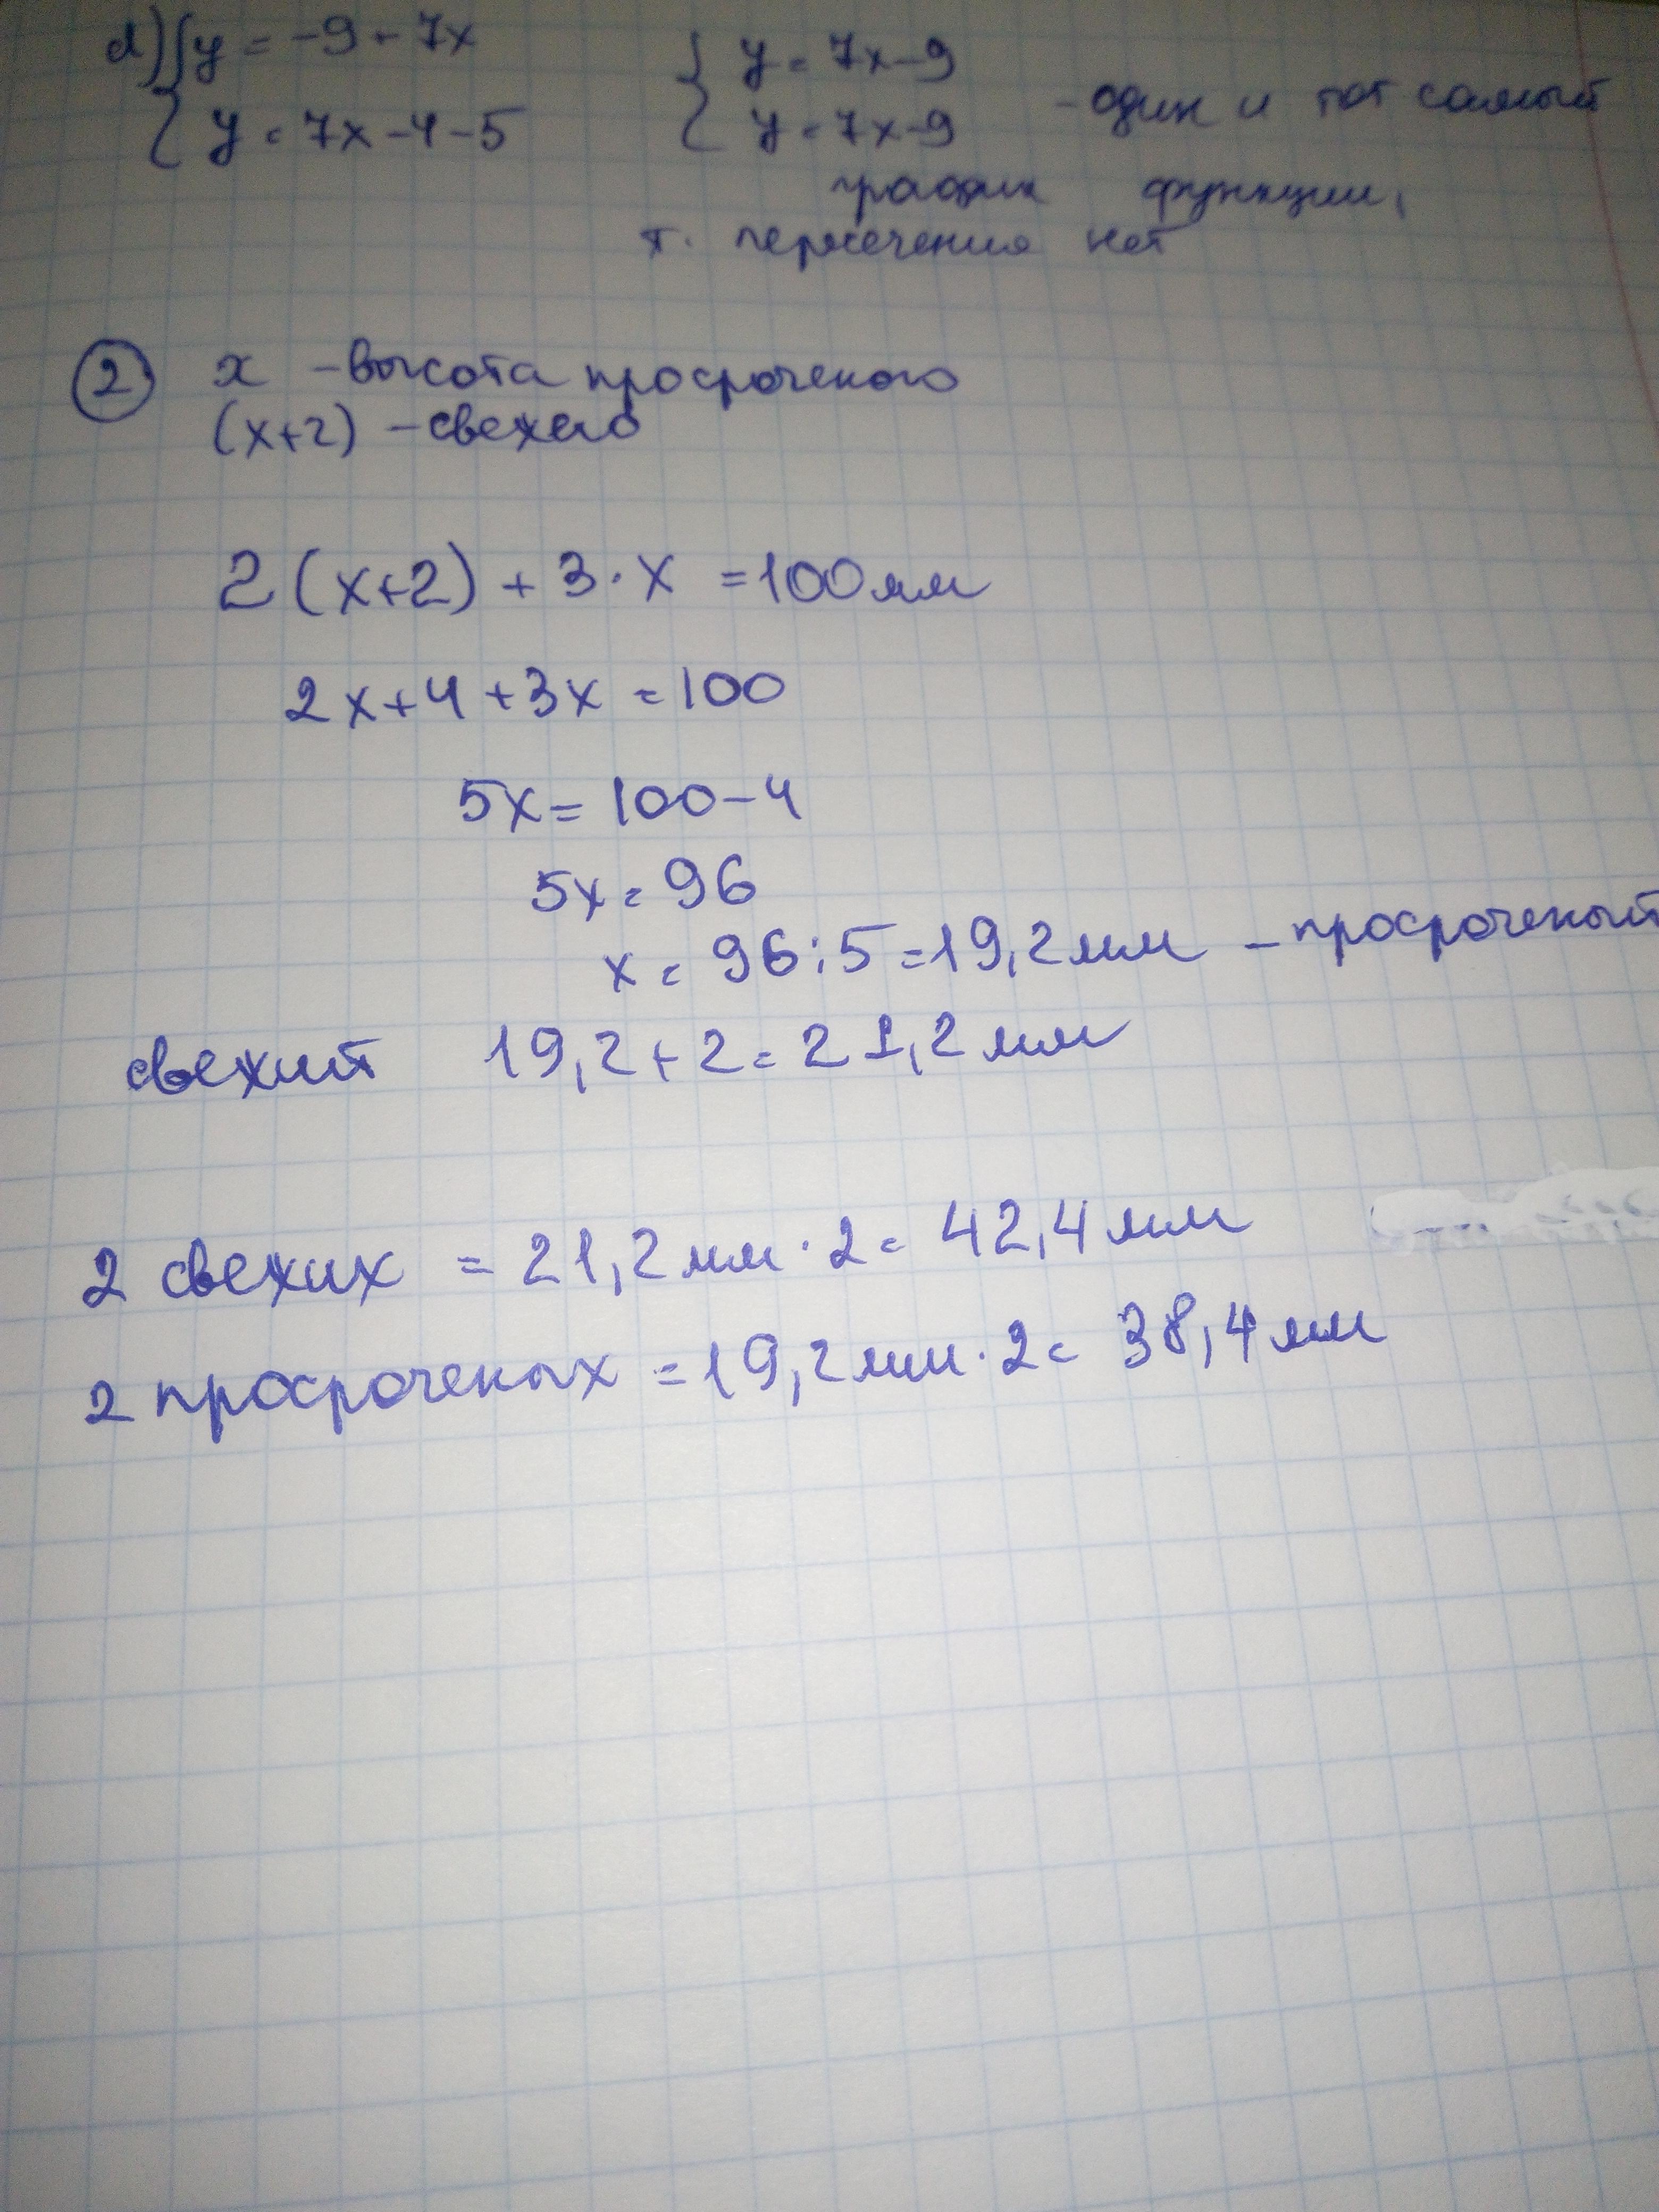 d) { y = -9 + 7x { y = 7x-9
y = 7x-4-5 y = 7x-9 - один и тот самый
график функции,
т. пересечения нет
2 x - высота просроченого
(x+2) - свежего
2(x+2) + 3·x = 100мм
2x+4+3x = 100
5x = 100-4
5x = 96
x = 96:5 = 19,2мм - просроченый
свежий 19,2+2 = 21,2мм
2 свежих = 21,2мм·2 = 42,4мм
2 просроченых = 19,2мм·2 = 38,4мм